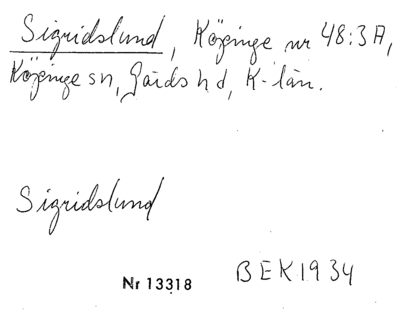 Sigridslund, Köpinge nr 48:3A,
Köpinge sn, Gärds hd, K-län.
Sigridslund
Nr 13318 BEK 1934